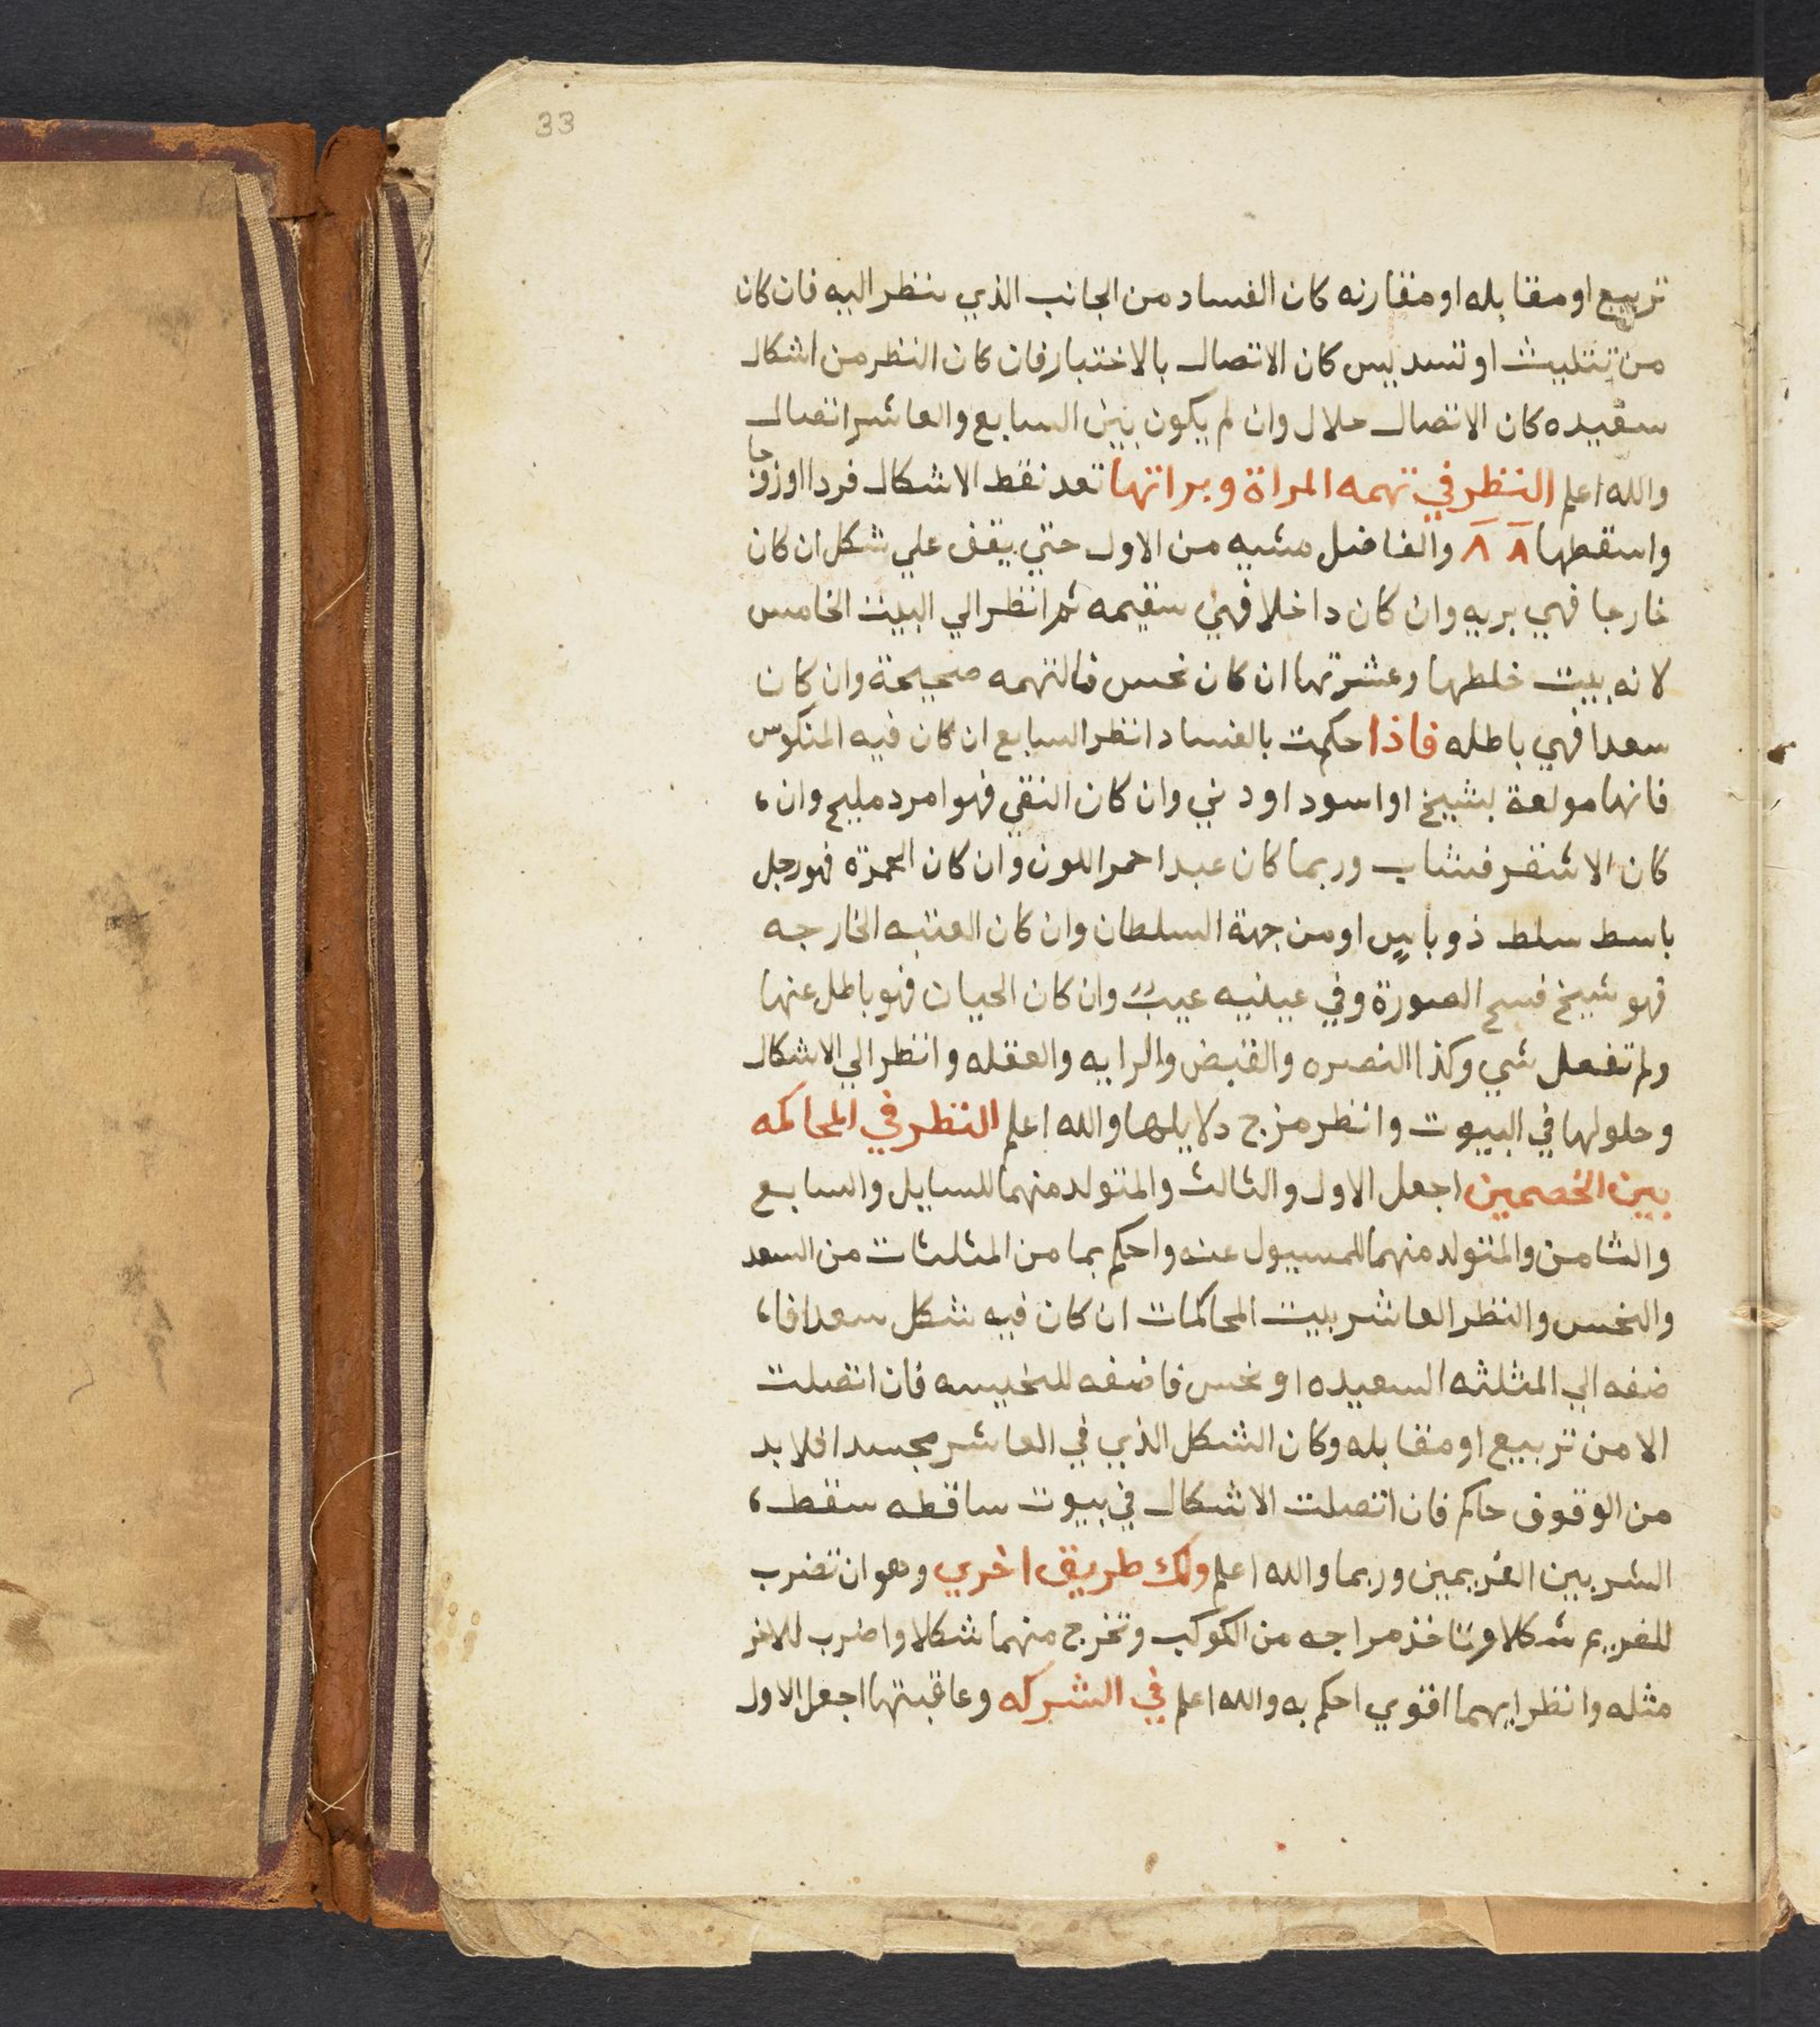 33
تربيع او مقابله او مقارنه كان الفساد من الجانب الذي ينظر اليه فان كان
من تثليث او تسديس كان الاتصال بالاختيار فان كان النظر من اشكال
سعيده كان الاتصال حلال وان لم يكون بين السابع والعاشر اتصال
والله اعلم النظر في تهمه المراة وبراتها تعد نقط الاشكال فردا اوزوجا
واسقطها ٨ ٨ والفاضل مشيه من الاول حتي يقف علي شكل ان كان
خارجا فهي بريه وان كان داخلا فهي سقيمه ثم انظر الي البيت الخامس
لانه بيت خلطها وعشرتها ان كان نحس فالتهمه صحيحة وان كان
سعدا فهي باطله فاذا حكمت بالفساد انظر السابع ان كان فيه المنكوس
فانها مولعة بشيخ او اسود او دني وان كان النقي فهو امرد مليح وان،
كان الاشقر فشاب وربما كان عبدا احمر اللون وان كان الحمرة فهو رجل
باسط سلط ذو باس او من جهة السلطان وان كان العتبه الخارجه
فهو شيخ فسح الصورة وفي عينيه عيب وان كان الحيان فهو باطل عنها
ولم تفعل شي وكذا النصره والقبض والرايه والعقله وانظر الي الاشكال
وحلولها في البيوت وانظر مزج دلايلها والله اعلم النظر في المحاكمه
بين الخصمين اجعل الاول والثالث والمتولد منهما للسايل والسابع
والثامن والمتولد منهما للمسيول عنه واحكم بما من المثلثات من السعد
والنحس والنظر العاشر بيت المحاكمات ان كان فيه شكل سعدا فا،
ضفه الي المثلثه السعيده او نحس فاضفه للنحيسه فان اتصلت
الا من تربيع او مقابله وكان الشكل الذي في العاشر مجسدا فلا بد
من الوقوف حاكم فان اتصلت الاشكال في بيوت ساقطه سقط،
الشر بين الغريمين وربما والله اعلم ولك طريق اخري وهو ان تضرب
للغريم شكلا وتاخذ مراجه من الكوكب وتخرج منهما شكلا واضرب للاخر
مثله وانظر ايهما اقوي احكم به والله اعلم في الشركه وعاقبتها اجعل الاول